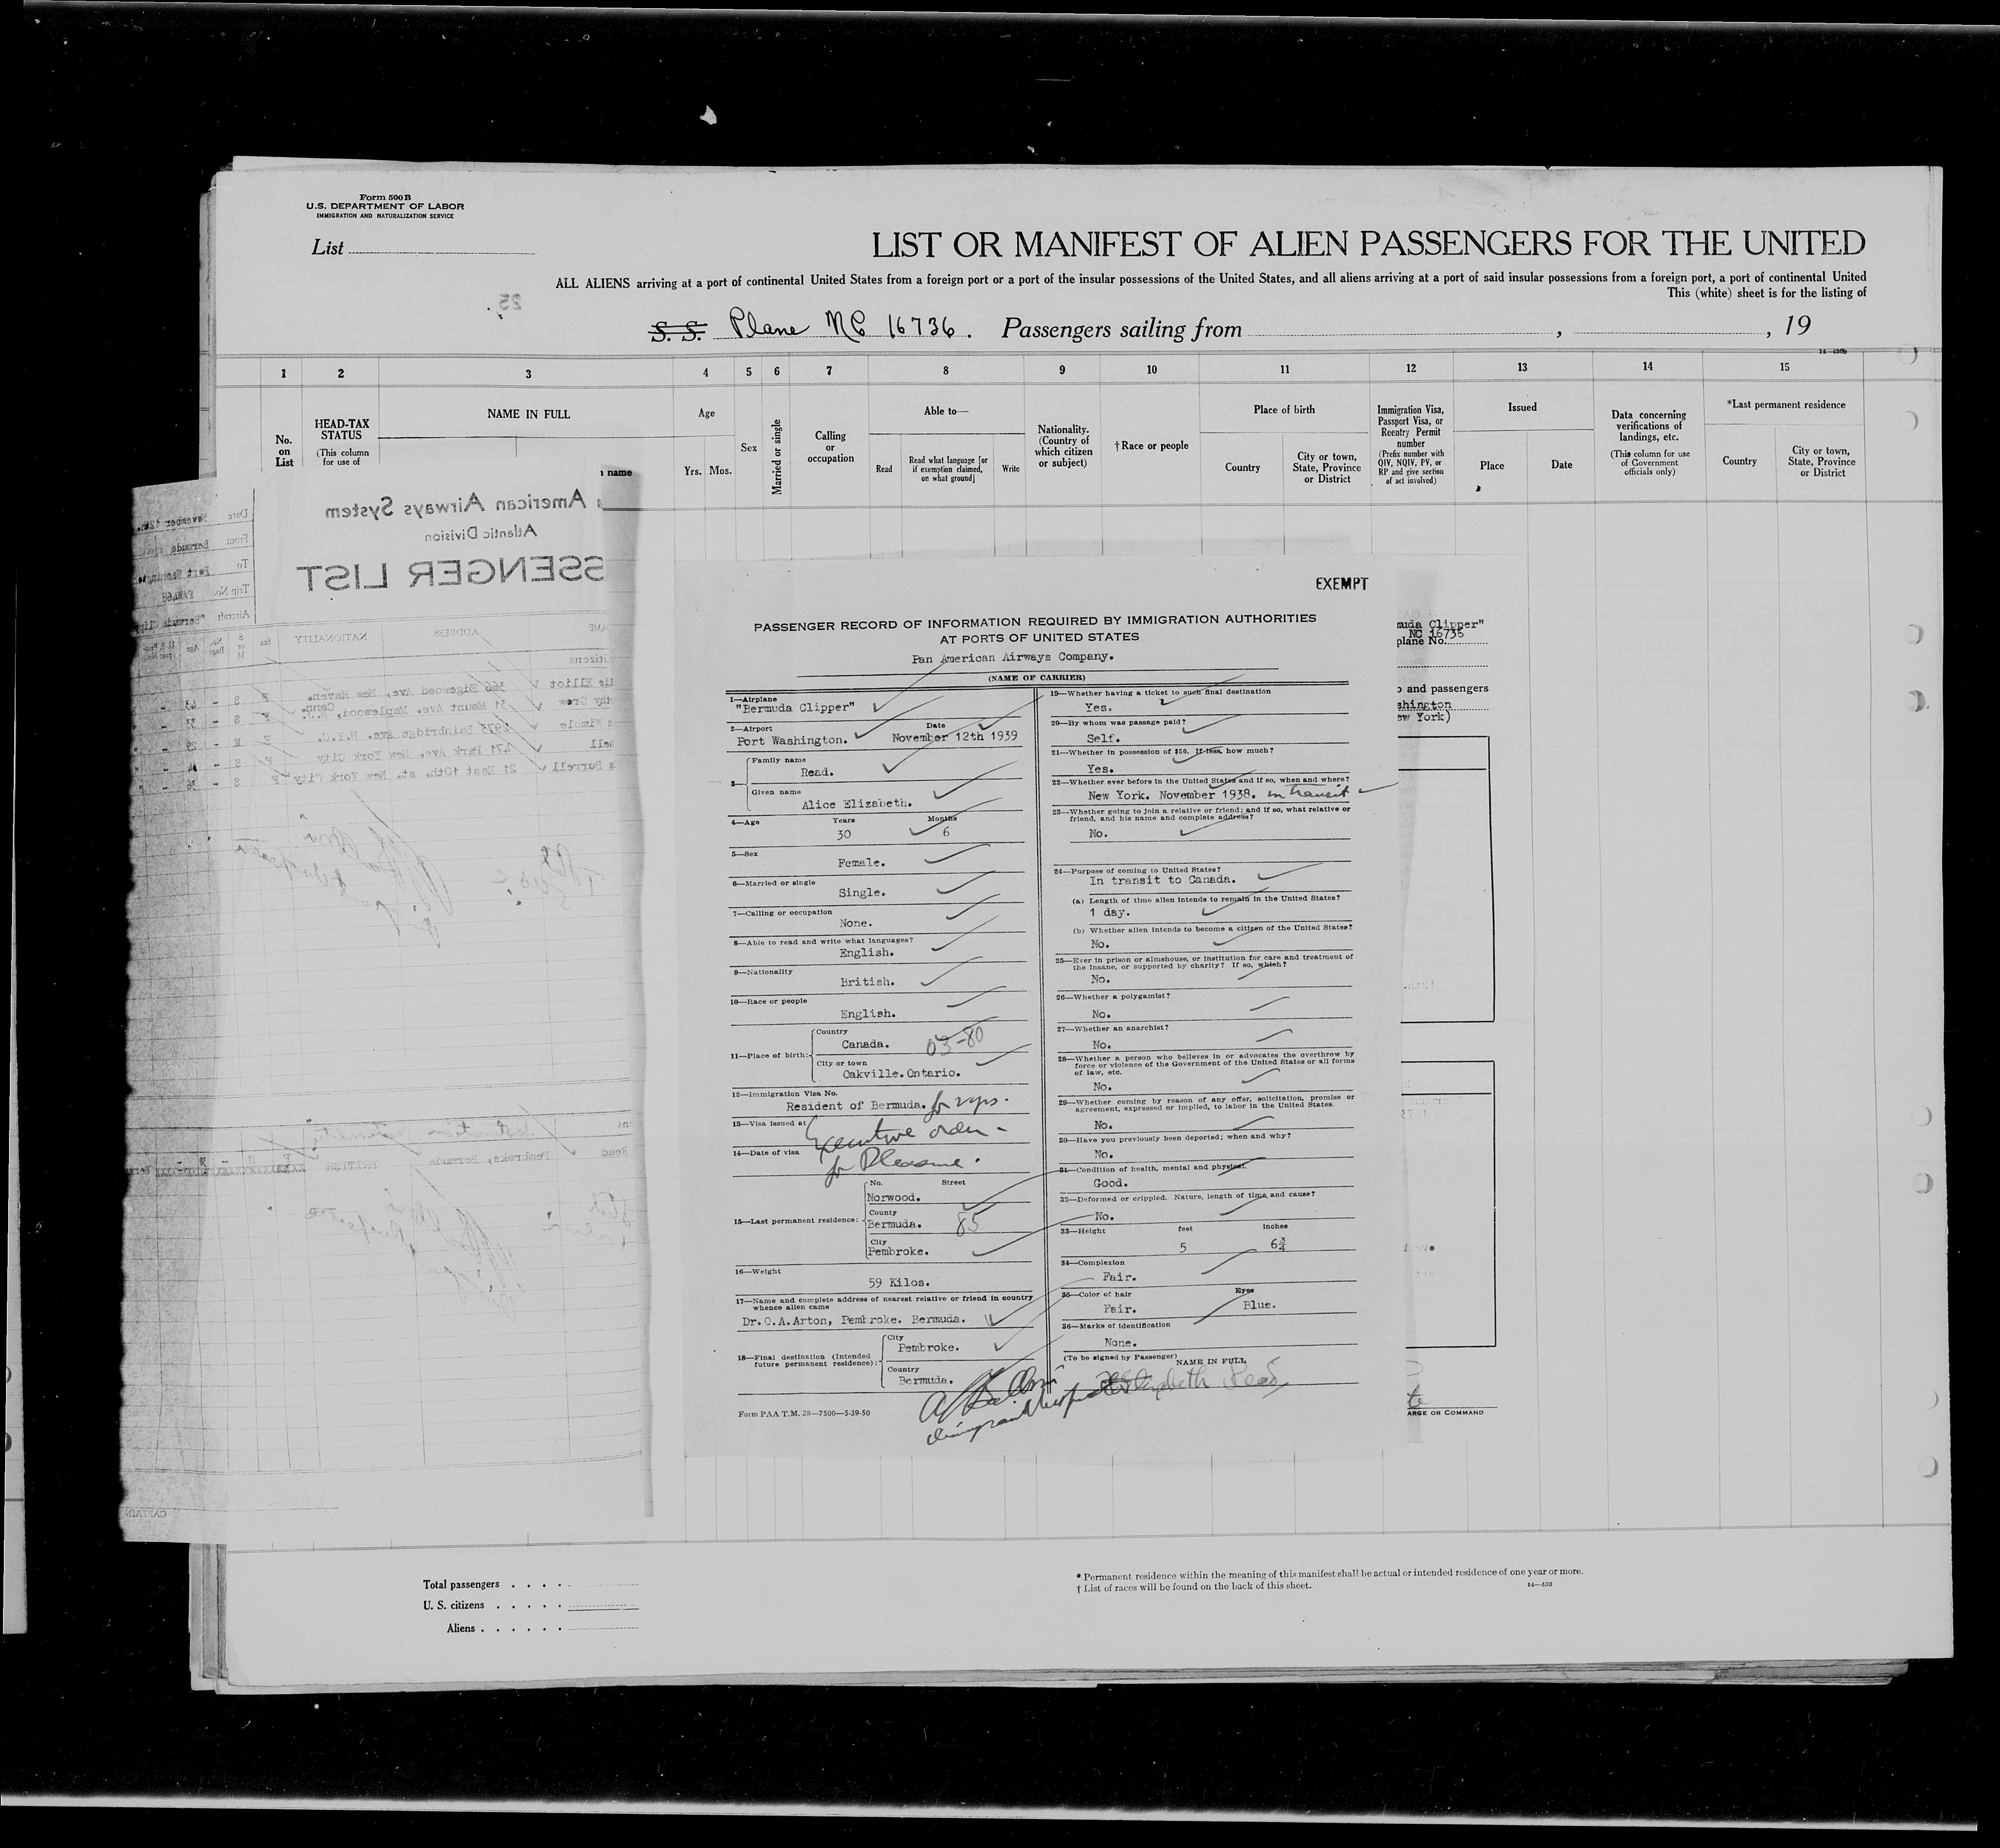 Form 500B
U.S. DEPARTMENT OF LABOR
IMMIGRATION AND NATURALIZATION SERVICE
List
LIST OR MANIFEST OF ALIEN PASSENGERS FOR THE UNITED
ALL ALIENS arriving at a port of continental United States from a foreign port or a port of the insular possessions of the United States, and all aliens arriving at a port of said insular possessions from a foreign port, a port of continental United
This (white) sheet is for the listing of
25
S. S. Plane NC 16736. Passengers sailing from , , 19
14—430b
1 2 3 4 5 6 7 8 9 10 11 12 13 14 15
No. on List
HEAD-TAX STATUS
(This column for use of
NAME IN FULL
name
Age
Yrs. Mos.
Sex
Married or single
Calling or occupation
Able to—
Read
Read what language [or if exemption claimed, on what ground]
Write
Nationality. (Country of which citizen or subject)
†Race or people
Place of birth
Country
City or town, State, Province or District
Immigration Visa, Passport Visa, or Reentry Permit number
(Prefix number with QIV, NQIV, PV, or RP and give section of act involved)
Issued
Place
Date
Data concerning verifications of landings, etc.
(This column for use of Government officials only)
*Last permanent residence
Country
City or town, State, Province or District
American Airways System
Atlantic Division
SSENGER LIST
Date November 12th
From Bermuda
To Port Washington
Trip No.
Aircraft "Bermuda Clipper
ADDRESS NATIONALITY Sex
Elliot 366 Edgewood Ave, New Haven, Conn. F S - 43
31 Mount Ave. Maplewood, N.J.
Wimble 2975 Bainbridge Ave. N.Y.C.
471 Park Ave. New York City F S
Burrell 21 East 10th. st. New York City F S - 36
Read Pembroke, Bermuda BRITISH
CAPTAIN
EXEMPT
PASSENGER RECORD OF INFORMATION REQUIRED BY IMMIGRATION AUTHORITIES
AT PORTS OF UNITED STATES
Pan American Airways Company.
(NAME OF CARRIER)
1—Airplane
"Bermuda Clipper"
2—Airport Date
Port Washington. November 12th 1939
3—
Family name
Read.
Given name
Alice Elizabeth.
4—Age Years Months
30 6
5—Sex
Female.
6—Married or single
Single.
7—Calling or occupation
None.
8—Able to read and write what languages?
English.
9—Nationality
British.
10—Race or people
English.
11—Place of birth:
Country
Canada. 03-80
City or town
Oakville.Ontario.
12—Immigration Visa No.
Resident of Bermuda. for
13—Visa issued at Executive order -
14—Date of visa for Pleasure.
15—Last permanent residence:
No. Street
Norwood.
County
Bermuda. 85
City
Pembroke.
16—Weight
59 Kilos.
17—Name and complete address of nearest relative or friend in country
whence alien came
Dr.O.A.Arton, Pembroke. Bermuda.
18—Final destination (Intended
future permanent residence):
City
Pembroke.
Country
Bermuda.
Form PAA T.M. 28—7500—5-39-50
19—Whether having a ticket to such final destination
Yes.
20—By whom was passage paid?
Self.
21—Whether in possession of $50. If less, how much?
Yes.
22—Whether ever before in the United States and if so, when and where?
New York. November 1938. in transit
23—Whether going to join a relative or friend; and if so, what relative or
friend, and his name and complete address?
No.
24—Purpose of coming to United States?
In transit to Canada.
(a) Length of time alien intends to remain in the United States?
1 day.
(b) Whether alien intends to become a citizen of the United States?
No.
25—Ever in prison or almshouse, or institution for care and treatment of
the insane, or supported by charity? If so, which?
No.
26—Whether a polygamist?
No.
27—Whether an anarchist?
No.
28—Whether a person who believes in or advocates the overthrow by
force or violence of the Government of the United States or all forms
of law, etc.
No.
29—Whether coming by reason of any offer, solicitation, promise or
agreement, expressed or implied, to labor in the United States.
No.
30—Have you previously been deported; when and why?
No.
31—Condition of health, mental and physical.
Good.
32—Deformed or crippled. Nature, length of time, and cause?
No.
33—Height feet inches
5 6¾
34—Complexion
Fair.
35—Color of hair Eyes
Fair. Blue.
36—Marks of identification
None.
(To be signed by Passenger)
NAME IN FULL
Elizabeth Read
Immigrant Inspector
muda Clipper"
NC 16736
plane No.
and passengers
shington
ew York)
ARGE OR COMMAND
Total passengers
U. S. citizens
Aliens
* Permanent residence within the meaning of this manifest shall be actual or intended residence of one year or more.
† List of races will be found on the back of this sheet.
14—430